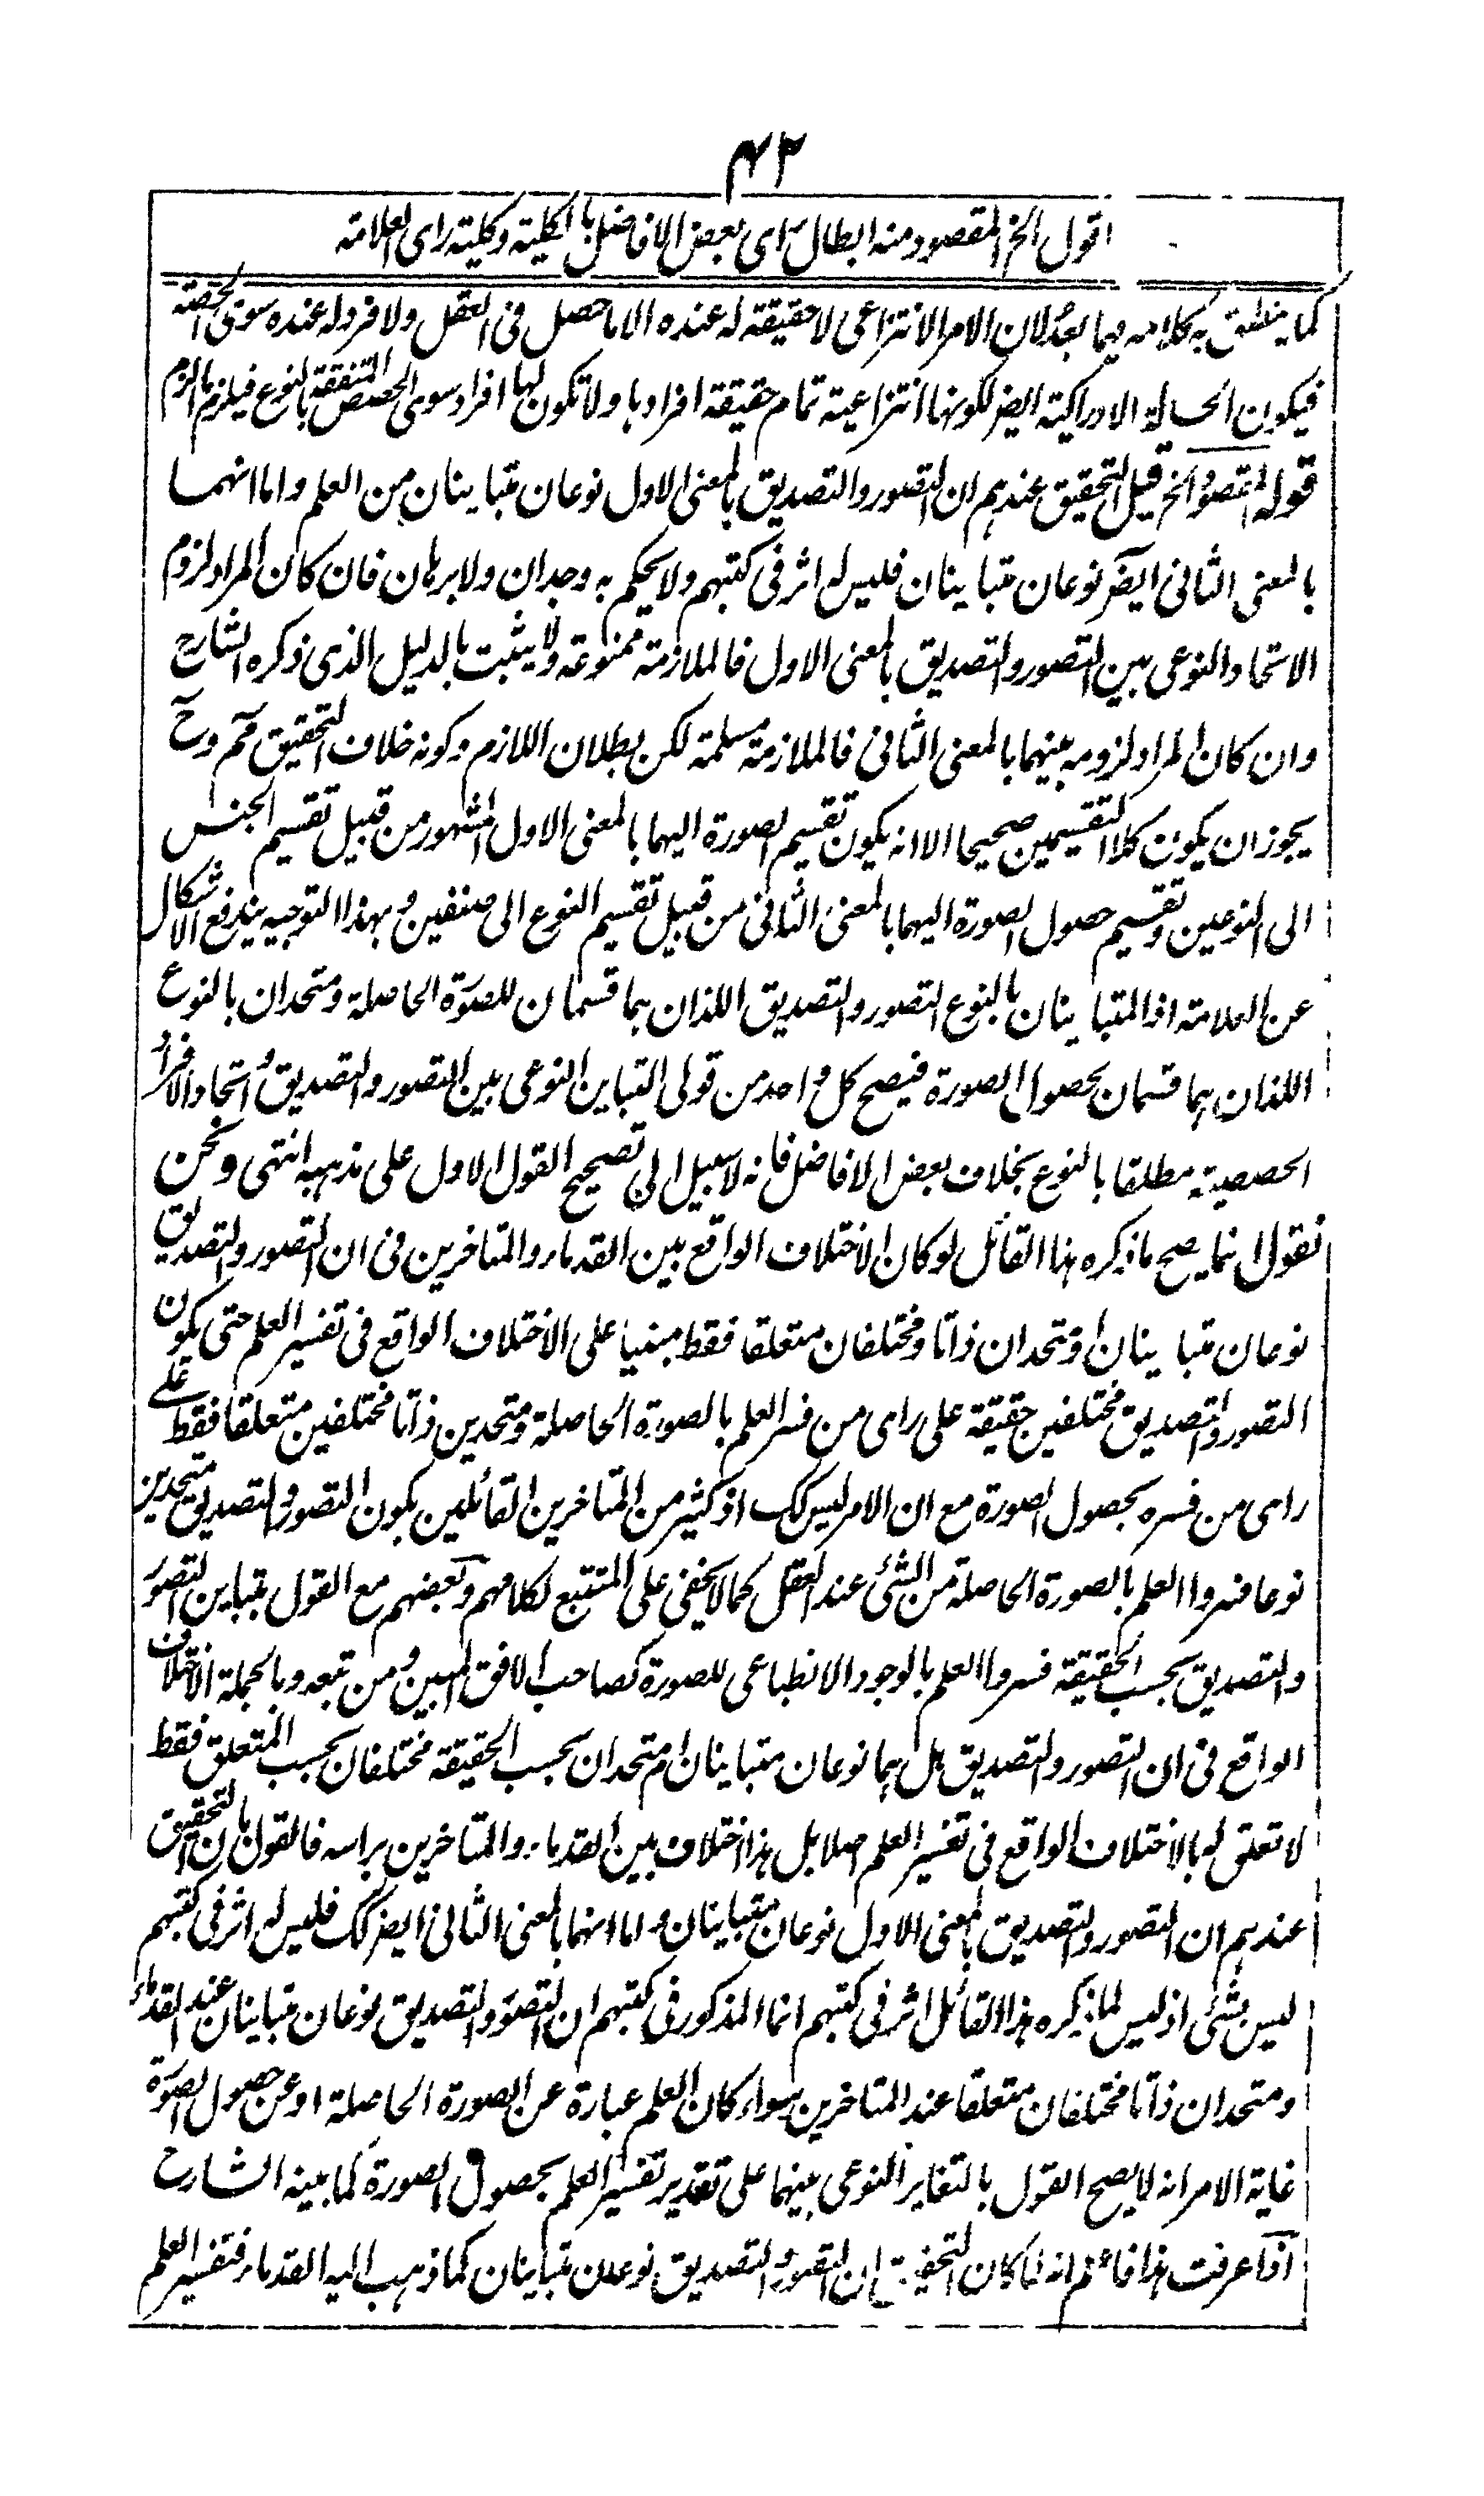 ٤٢
اقول الخ المقصود منه ابطال رای بعض الافاضل بالكلية وكلية رای العلامة
كما ينطق به كلامه فيما بعد لان الامر الانتزاعی لا حقيقة له عنده الا ما حصل فی العقل ولا فرد له عنده سوی الحصة
فيكون الحالة الادراكية ايضر لكونها انتزاعية تمام حقيقة افرادها ولا تكون لها افراد سوی الحصص المتفقة بالنوع فيلزم ما لزم
قوله المقصو الخ قيل التحقيق عندهم ان التصور والتصديق بالمعنی الاول نوعان متباينان من العلم واما انهما
بالمعنی الثانی ايضر نوعان متباينان فليس له اثر فی كتبهم ولا يحكم به وجدان ولا برهان فان كان المراد لزوم
الاتحاد النوعی بين التصور والتصديق بالمعنی الاول فالملازمة ممنوعة ولا يثبت بالدليل الذی ذكره الشارح
وان كان المراد لزومه بينهما بالمعنی الثانی فالملازمة مسلمة لكن بطلان اللازم وكونه خلاف التحقيق مم وح
يجوز ان يكون كلا التقسيمين صحيحا الا انه يكون تقسيم الصورة اليهما بالمعنی الاول المشهور من قبيل تقسيم الجنس
الی النوعين وتقسيم حصول الصورة اليهما بالمعنی الثانی من قبيل تقسيم النوع الی صنفين وبهذا التوجيه يندفع الاشكال
عن العلامة اذ المتباينان بالنوع التصور والتصديق اللذان هما قسمان للصورة الحاصلة ومتحدان بالنوع
اللذان هما قسمان لحصول الصورة فيصح كل واحد من قولی التباين النوعی بين التصور والتصديق واتحاد الافراد
الحصصية مطلقا بالنوع بخلاف بعض الافاضل فانه لا سبيل الی تصحيح القول الاول علی مذهبه انتهی ونحن
نقول انما يصح ما ذكره هذا القائل لو كان الاختلاف الواقع بين القدماء والمتاخرين فی ان التصور والتصديق
نوعان متباينان او متحدان ذاتا ومختلفان متعلقا فقط مبنيا علی الاختلاف الواقع فی تفسير العلم حتی يكون
التصور والتصديق مختلفين حقيقة علی رای من فسر العلم بالصورة الحاصلة ومتحدين ذاتا مختلفين متعلقا فقط علی
رای من فسره بحصول الصورة مع ان الامر ليس كك اذ كثير من المتاخرين القائلين بكون التصور والتصديق متحدين
نوعا فسروا العلم بالصورة الحاصلة من الشئ عند العقل كما لا يخفی علی المتتبع لكلامهم وبعضهم مع القول بتباين التصور
والتصديق بحسب الحقيقة فسروا العلم بالوجود الانطباعی للصورة كصاحب الافق المبين ومن تبعه وبالجملة الاختلاف
الواقع فی ان التصور والتصديق هل هما نوعان متباينان ام متحدان بحسب الحقيقة مختلفان بحسب المتعلق فقط
لا تعلق له بالاختلاف الواقع فی تفسير العلم اصلا بل هذا اختلاف بين القدماء والمتاخرين براسه فالقول بان التحقيق
عندهم ان التصور والتصديق بالمعنی الاول نوعان متباينان واما انهما بالمعنی الثانی ايضر كك فليس له اثر فی كتبهم
ليس بشئ اذ ليس لما ذكره هذا القائل اثر فی كتبهم انما المذكور فی كتبهم ان التصور والتصديق نوعان متباينان عند القدماء
ومتحدان ذاتا مختلفان متعلقا عند المتاخرين سواء كان العلم عبارة عن الصورة الحاصلة او عن حصول الصورة
غاية الامر انه لا يصح القول بالتغاير النوعی بينهما علی تقدير تفسير العلم بحصول الصورة كما بينه الشارح
اذا عرفت هذا فاعلم انه لما كان التحقيق ان التصور والتصديق نوعان متباينان كما ذهب اليه القدماء فتفسير العلم